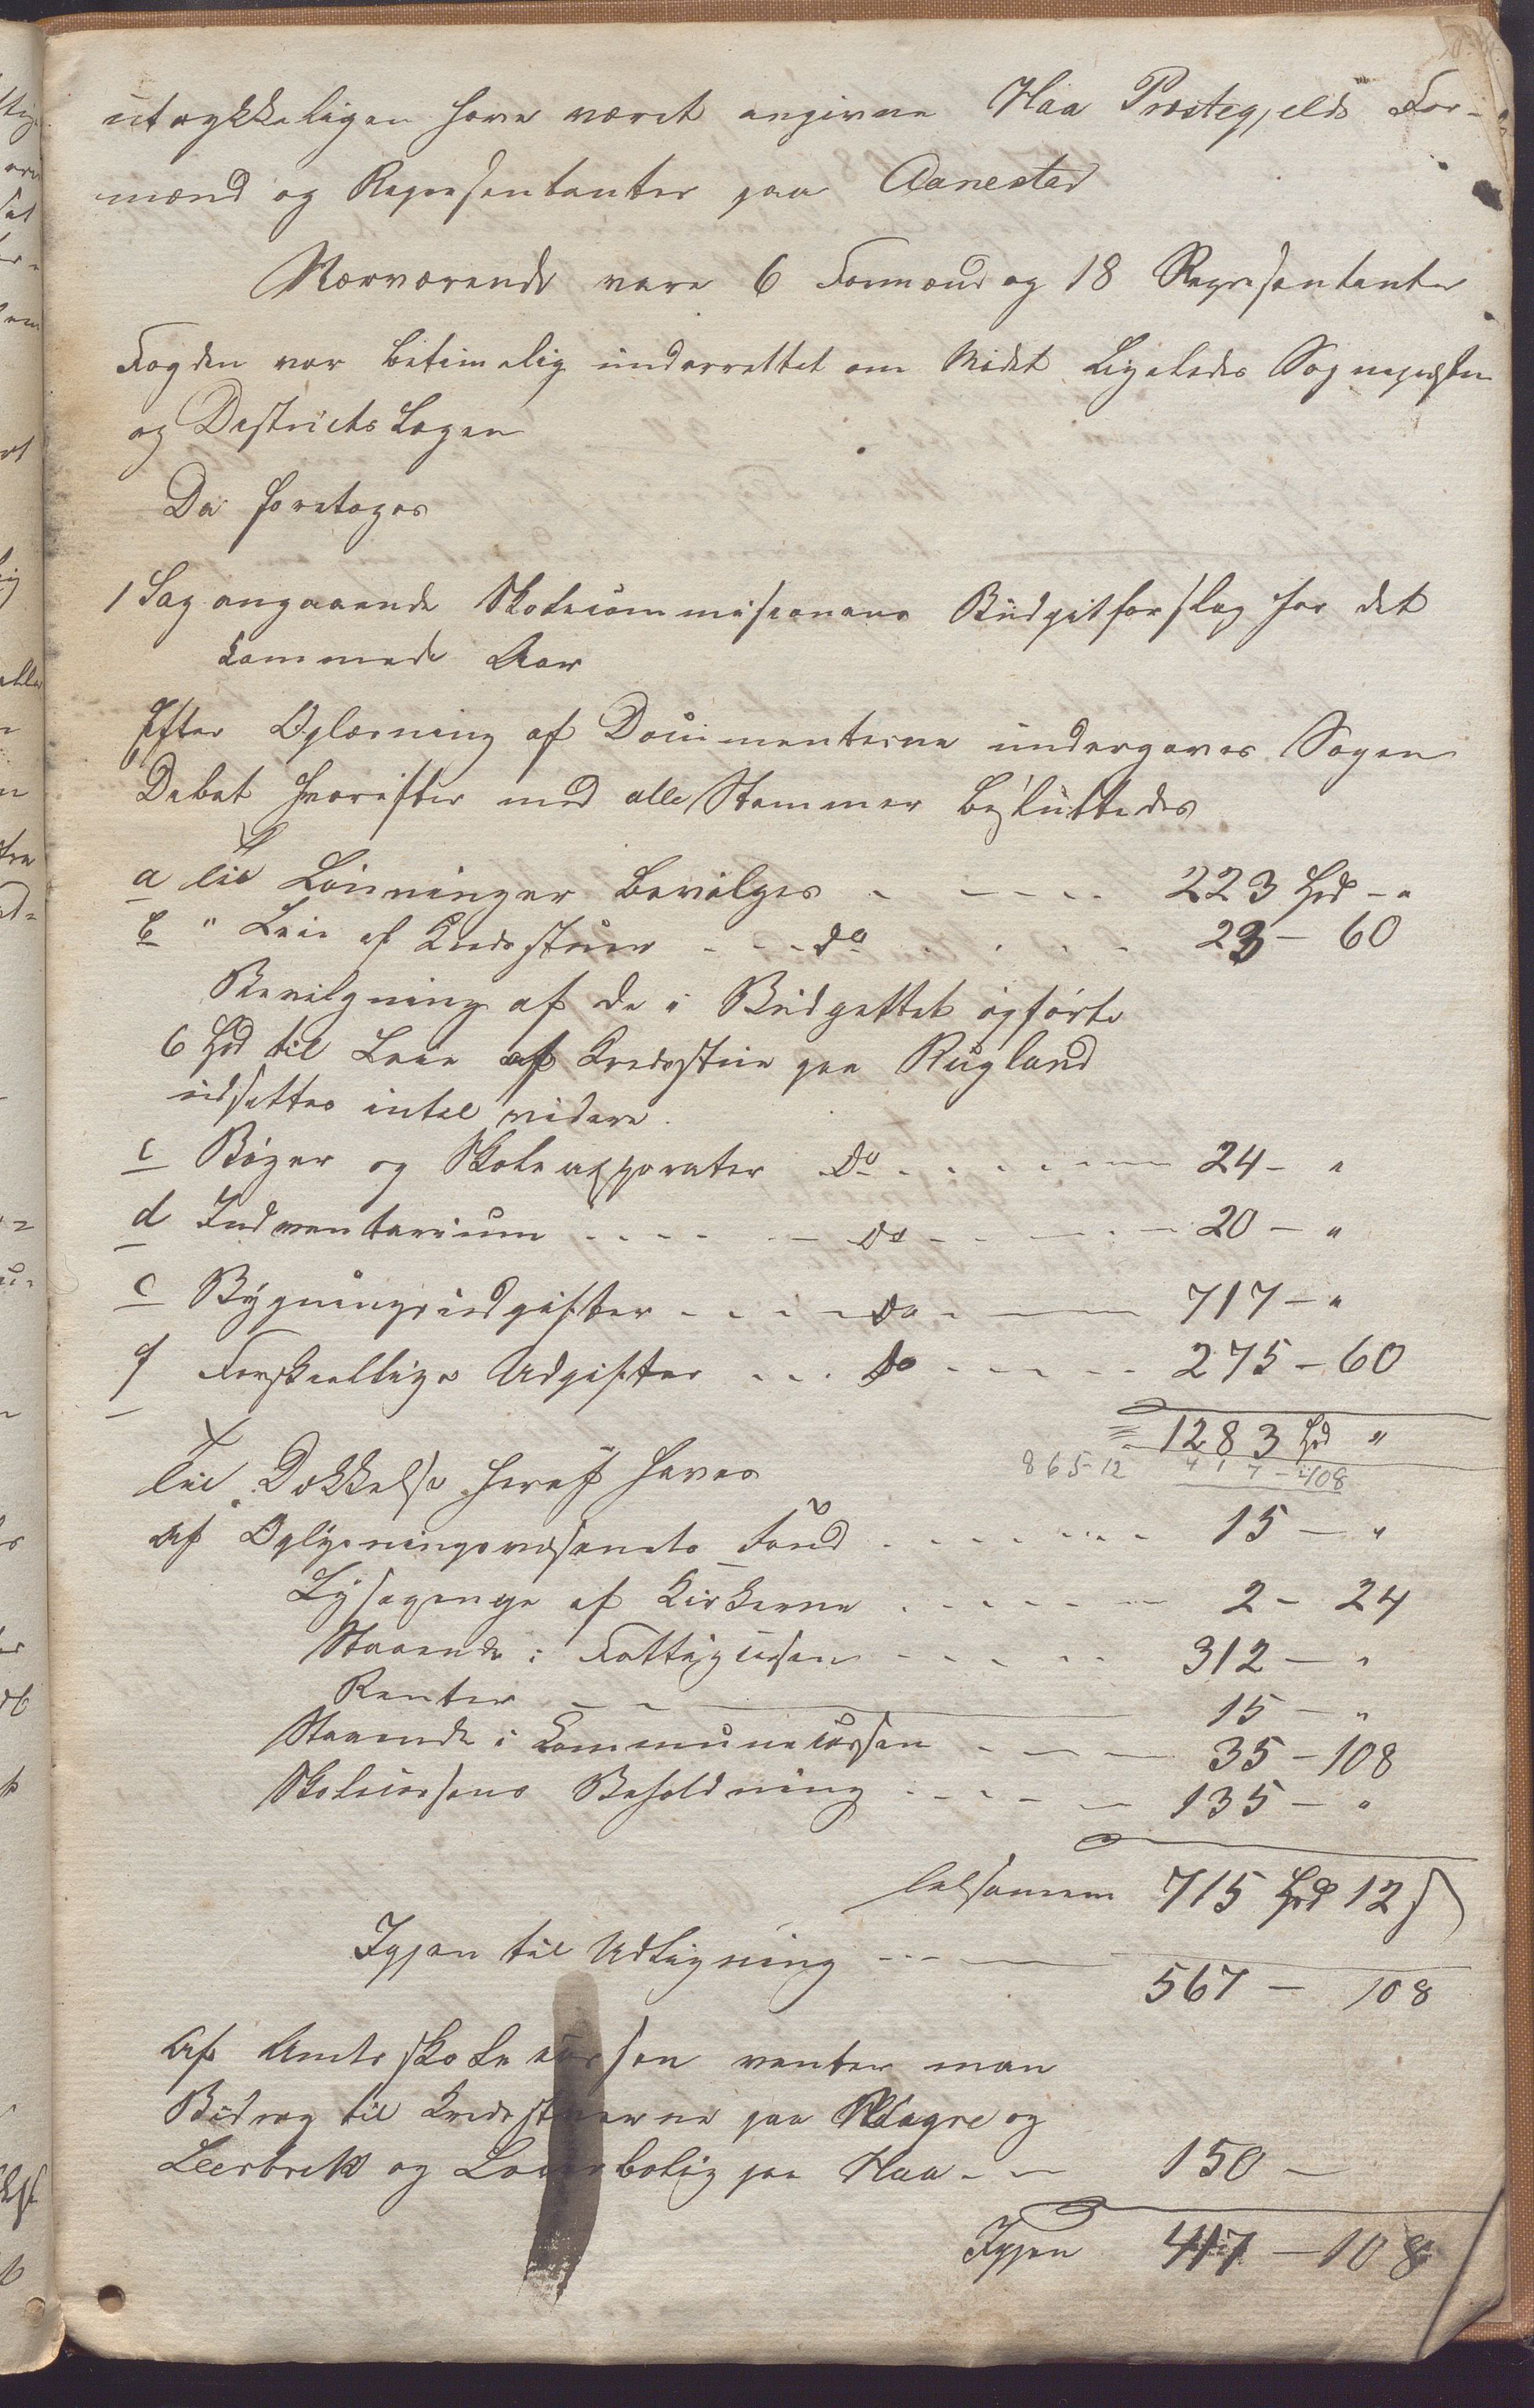 utrykkeligen have været angivne Haa Præstegjelds For-
mænd og Repræsentanter paa Aanestad
Nærværende vare 6 Formænd og 18 Repræsentanter
Fogden var betimelig underrettet om Mødet Ligeledes Sognepresten
og Districts Lægen
Da foretoges
1 Sag angaaende Skolecommisionens Budgetforslag for det
kommende Aar
Efter Oplæsning af Documenterne undergaves Sagen
Debat hvorefter med alle Stemmer besluttedes
a Til Lønninger bevilges 223 Spd - "
b " Leie af Kredsstuer - - - do 23 - 60
Bevilgning af de i Budgettet opførte
6 Spd til Leie af Kredsstue paa Rugland
udsettes intil videre.
c Bøger og Skoleapparater do 24 - "
d Indventarium do 20 - "
e Bygningsudgifter do 717 - "
f Forskjellige Udgifter do 275 - 60
1283 Spd "
865-12 417-108
Til Dækkelse heraf haves
Af Oplysningsvæsenets Fond 15 - "
Lysepenge af Kirkerne 2 - 24
Staaende i Fattigcassen 312 - "
Renter 15 - "
Staaende i Communecassen 35 - 108
Skolecassens Beholdning 135 - "
tilsamen 715 Spd 12 s
Igjen til Udligning 567 - 108
Af Amtsskolecassen venter man
Bidrag til Kredsstuerne paa Nagre og
Leerbrek og Lærerbolig paa Haa - - 150 -
Igjen 417 - 108